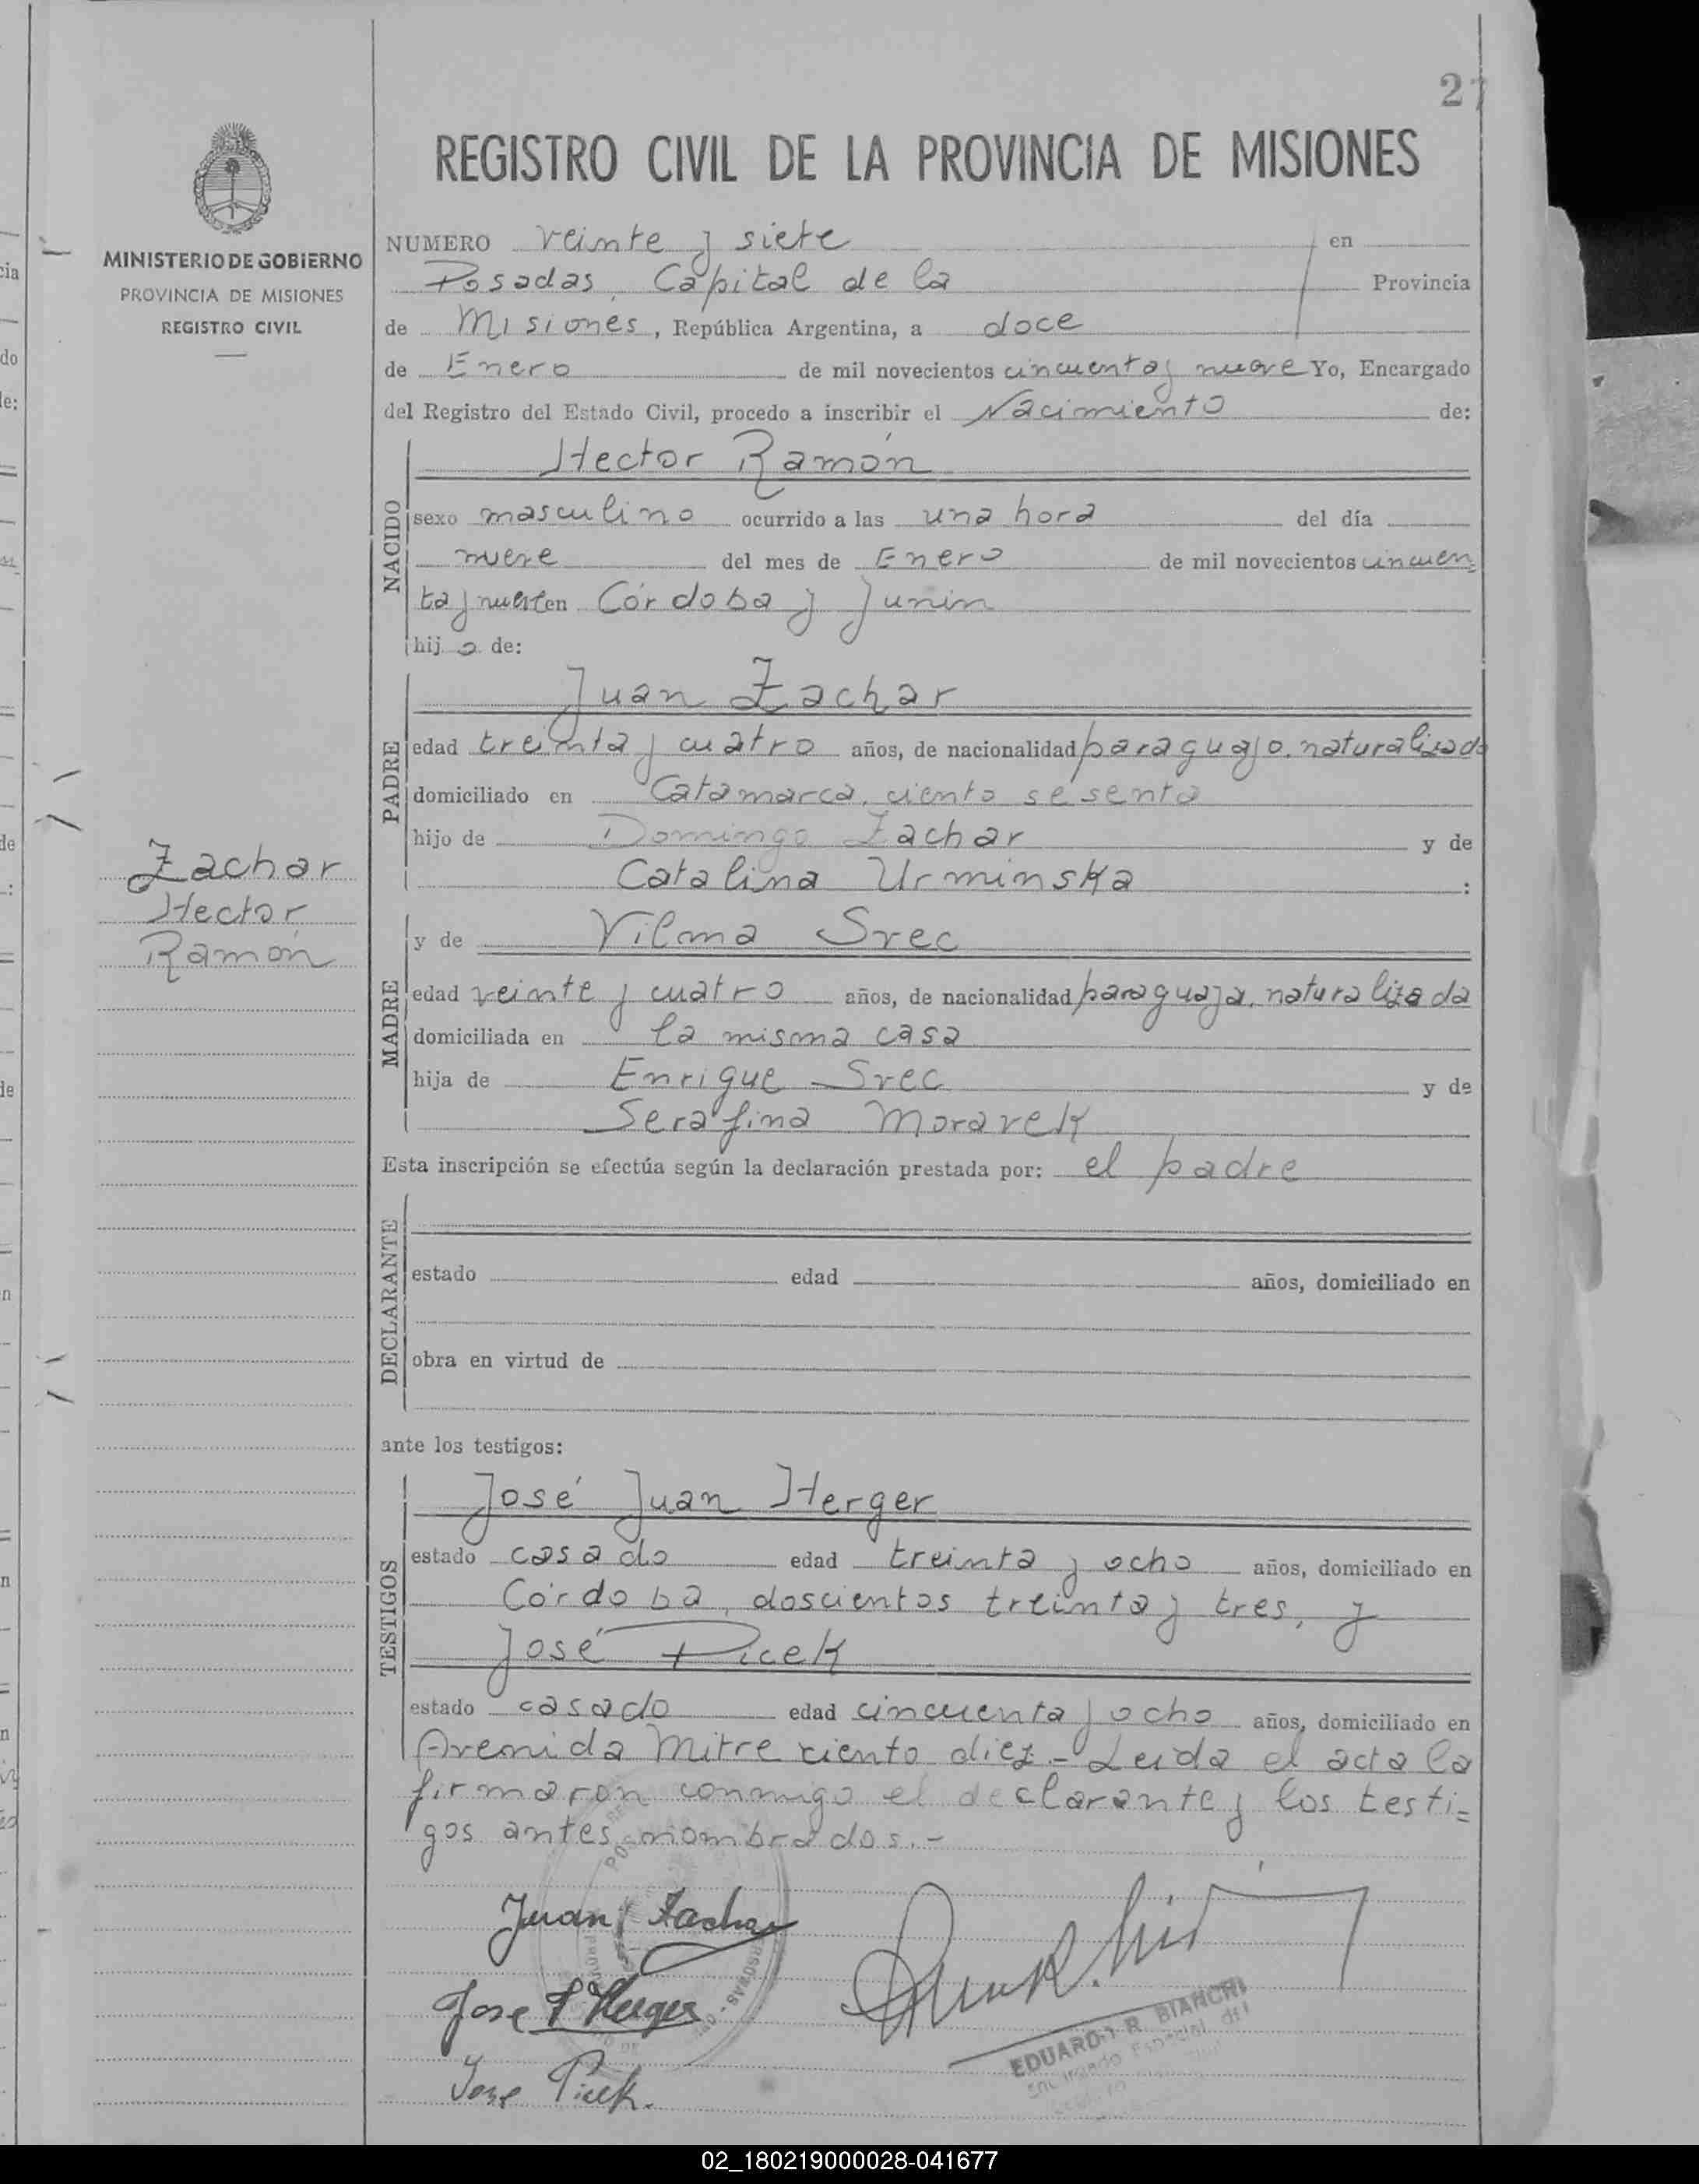 27
REGISTRO CIVIL DE LA PROVINCIA DE MISIONES
MINISTERIO DE GOBIERNO
PROVINCIA DE MISIONES
REGISTRO CIVIL
NUMERO veinte y siete en
Posadas, Capital de la Provincia
de Misiones, República Argentina, a doce
de Enero de mil novecientos cincuenta y nueve Yo, Encargado
del Registro del Estado Civil, procedo a inscribir el Nacimiento de:
NACIDO
Hector Ramón
sexo masculino ocurrido a las una hora del día
nueve del mes de Enero de mil novecientos cincuen
ta y nueve en Córdoba y Junin
hijo de:
PADRE
Juan Zachar
edad treinta y cuatro años, de nacionalidad paraguayo, naturalizado
domiciliado en Catamarca, ciento sesenta
hijo de Domingo Zachar y de
Catalina Urminska :
Zachar
Hector
Ramón
MADRE
y de Vilma Srec
edad veinte y cuatro años, de nacionalidad paraguaya, naturalizada
domiciliada en la misma casa
hija de Enrique Srec y de
Serafina Moravek
Esta inscripción se efectúa según la declaración prestada por: el padre
DECLARANTE
estado edad años, domiciliado en
obra en virtud de
ante los testigos:
TESTIGOS
José Juan Herger
estado casado edad treinta y ocho años, domiciliado en
Córdoba, doscientos treinta y tres, y
José Picek
estado casado edad cincuenta y ocho años, domiciliado en
Avenida Mitre ciento diez.- Leida el acta la
firmaron conmigo el declarante y los testi=
gos antes nombrados.-
Juan Zachar
Jose J Herger
Jose Picek.
EDUARDO R. BIANCHI
02_180219000028-041677